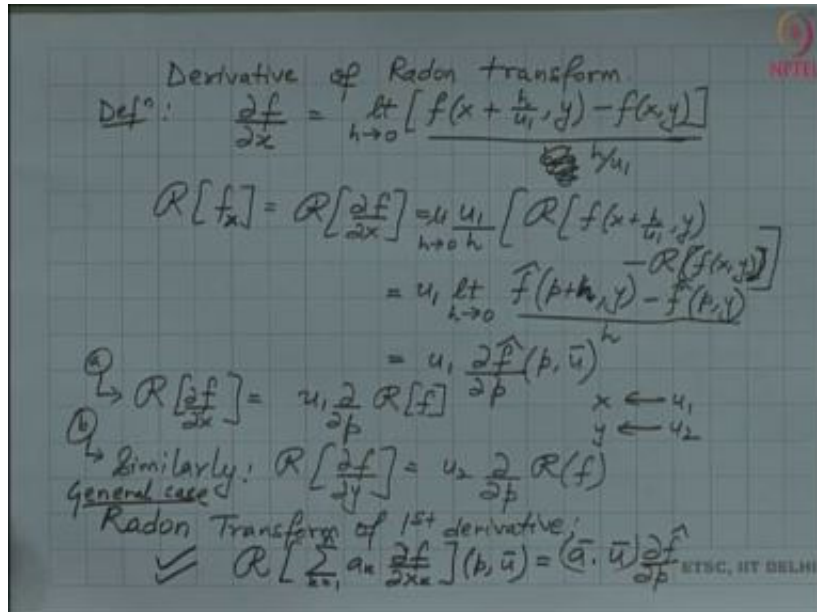 NPTEL
Derivative of Radon transform
Defⁿ: ∂f/∂x = lt h→0 [f(x + h/u₁, y) − f(x,y)] / h/u₁
R[fₓ] = R[∂f/∂x] = lt h→0 u₁/h [R[f(x + h/u₁, y) − R[f(x,y)]]
= u₁ lt h→0 f̂(p+h, y) − f̂(p, y) / h
= u₁ ∂f̂/∂p (p, ū)
(a) → R[∂f/∂x] = u₁ ∂/∂p R[f] x ← u₁
y ← u₂
(b) → Similarly: R[∂f/∂y] = u₂ ∂/∂p R(f)
General case
Radon Transform of 1st derivative:
R[∑ aₖ ∂f/∂xₖ](p, ū) = (ā·ū) ∂f̂/∂p
ETSC, IIT DELHI